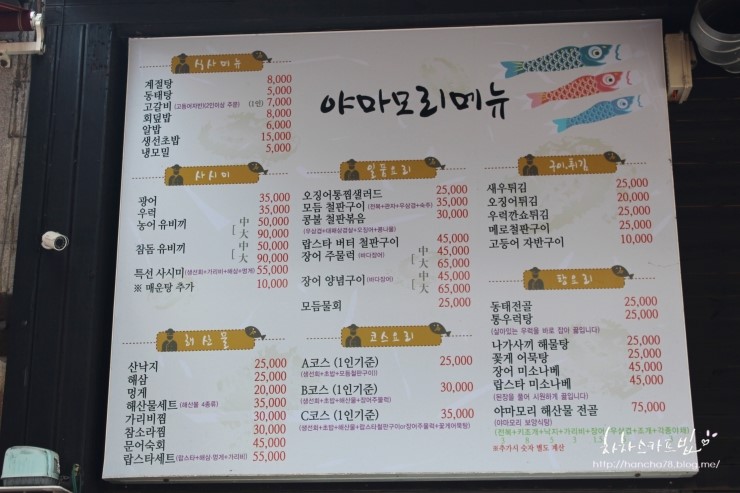 야마모리메뉴
식사메뉴
계절탕 8,000
동태탕 5,000
고갈비 (고등어자반)(2인이상 주문) (1인) 7,000
회덮밥 8,000
알밥 6,000
생선초밥 15,000
냉모밀 5,000
사시미
광어 35,000
우럭 35,000
농어 유비끼 中 50,000
大 90,000
참돔 유비끼 中 50,000
大 90,000
특선 사시미 (생선회+가리비+해삼+멍게) 55,000
※ 매운탕 추가 10,000
해산물
산낙지 25,000
해삼 25,000
멍게 20,000
해산물세트 (해산물 4종류) 35,000
가리비찜 30,000
참소라찜 30,000
문어숙회 45,000
랍스타세트 (랍스타+해삼·멍게+가리비) 55,000
일품요리
오징어통찜샐러드 25,000
모듬 철판구이 (전복+관자+우삼겹+숙주) 35,000
콩불 철판볶음 30,000
(우삼겹+대패삼겹살+오징어+콩나물)
랍스타 버터 철판구이 45,000
장어 주물럭 (바다장어) 中 45,000
大 65,000
장어 양념구이 (바다장어) 中 45,000
大 65,000
모듬물회 25,000
코스요리
A코스 (1인기준) 25,000
(생선회+초밥+모듬철판구이))
B코스 (1인기준) 30,000
(생선회+초밥+해산물+장어주물럭)
C코스 (1인기준) 35,000
(생선회+초밥+해산물+랍스타철판구이or장어주물럭+꽃게어묵탕)
구이.튀김
새우튀김 25,000
오징어튀김 20,000
우럭깐쇼튀김 25,000
메로철판구이 25,000
고등어 자반구이 10,000
탕요리
동태전골 25,000
통우럭탕 25,000
(살아있는 우럭을 바로 잡아 끓입니다)
나가사끼 해물탕 25,000
꽃게 어묵탕 25,000
장어 미소나베 45,000
랍스타 미소나베 45,000
(된장을 풀어 시원하게 끓입니다)
야마모리 해산물 전골 75,000
(야마모리 보양식탕)
(전복+키조개+낙지+가리비+장어+우삼겹+조개+각종야채)
※추가시 숫자 별도 계산
http://hancha78.blog.me/